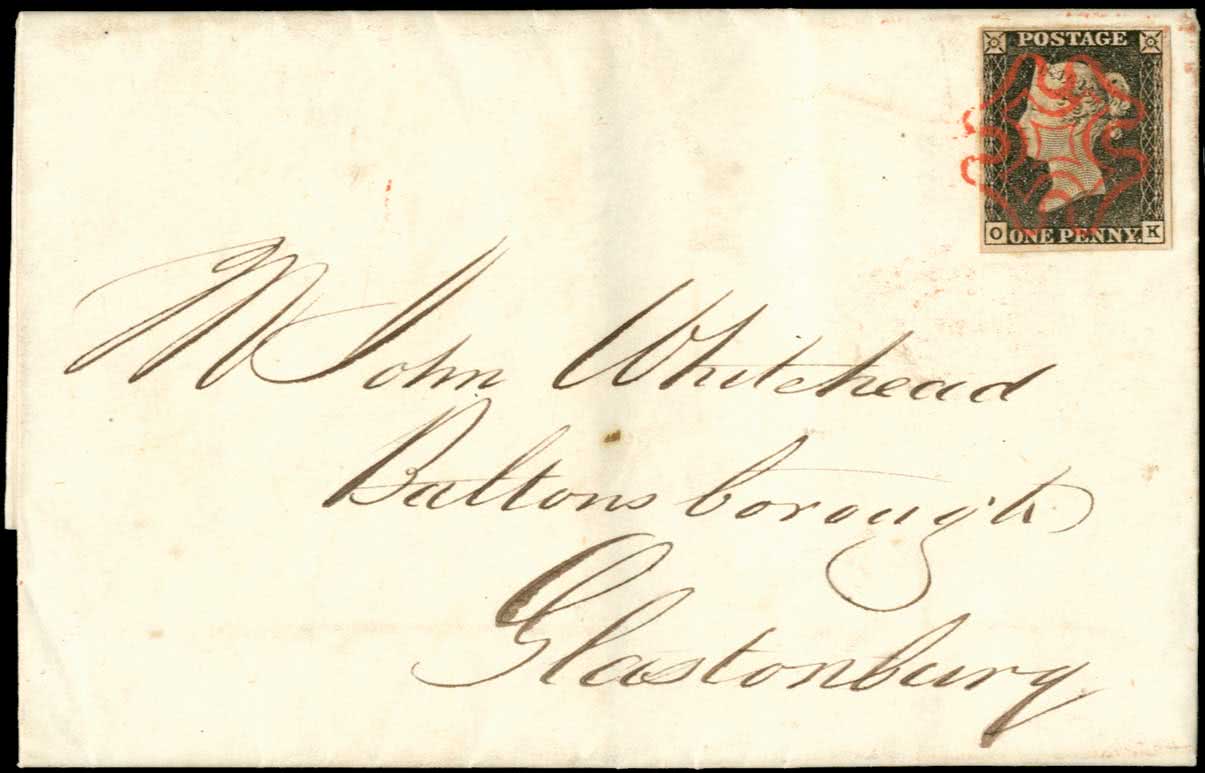 POSTAGE
O ONE PENNY. K
Mr John Whitehead
Baltonsborough
Glastonbury